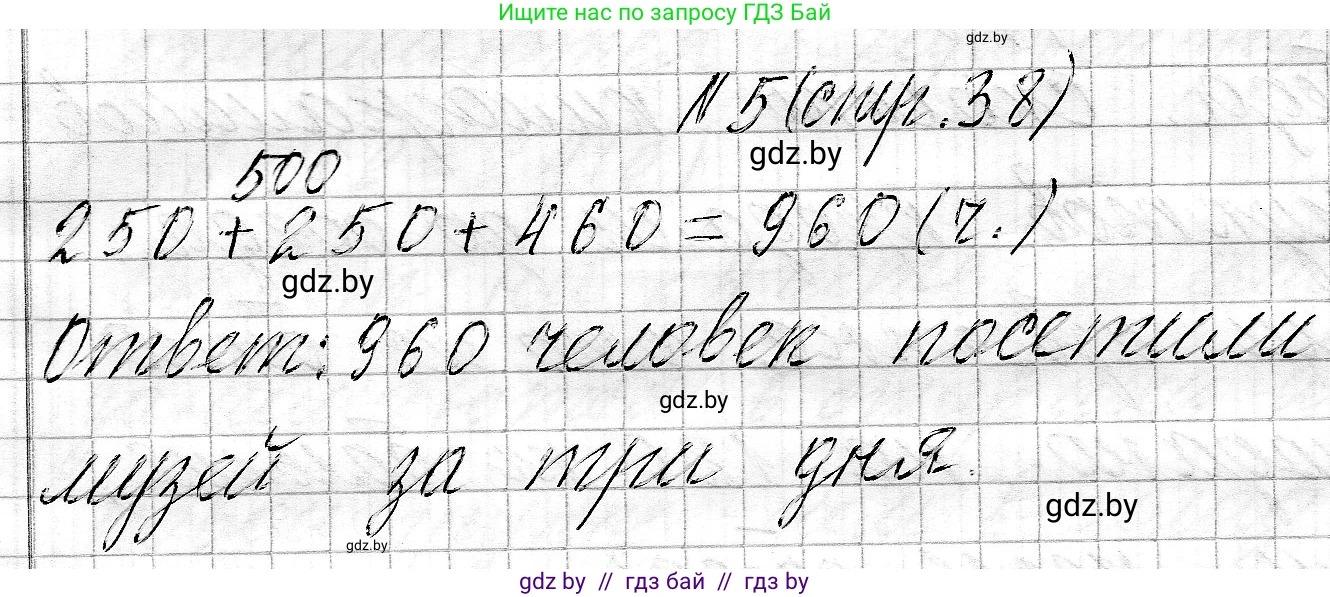 Ищите нас по запросу ГДЗ Бай
gdz.by
№ 5 (стр. 38)
gdz.by
500
250 + 250 + 460 = 960 (ч.)
gdz.by
Ответ: 960 человек посетили
gdz.by
музей за три дня.
gdz.by
gdz.by
gdz by // гдз бай // gdz by